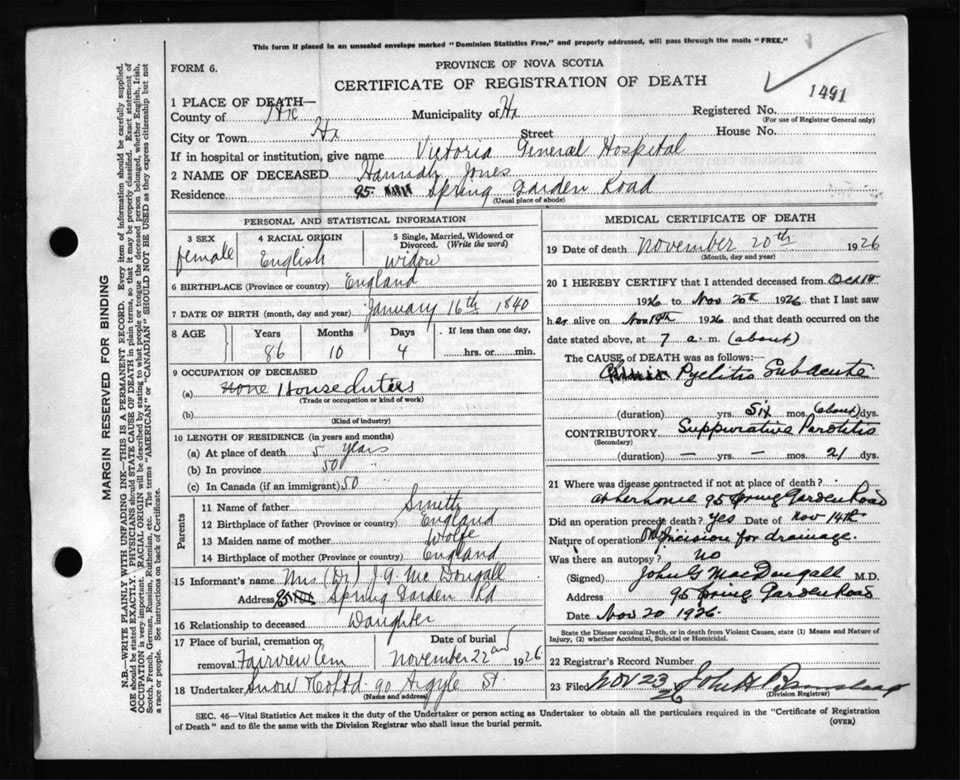 This form if placed in an unsealed envelope marked "Dominion Statistics Free," and properly addressed, will pass through the mails "FREE."
FORM 6.
PROVINCE OF NOVA SCOTIA
CERTIFICATE OF REGISTRATION OF DEATH
1491
1 PLACE OF DEATH—
County of Hx Municipality of Hx Registered No.
(For use of Registrar General only)
City or Town Hx Street House No.
If in hospital or institution, give name Victoria General Hospital
2 NAME OF DECEASED Hannah Jones
Residence 95 Spring Garden Road
(Usual place of abode)
PERSONAL AND STATISTICAL INFORMATION
3 SEX 4 RACIAL ORIGIN 5 Single, Married, Widowed or Divorced. (Write the word)
female English Widow
6 BIRTHPLACE (Province or country) England
7 DATE OF BIRTH (month, day and year) January 16th 1840
8 AGE Years Months Days If less than one day,
86 10 4 hrs. or min.
9 OCCUPATION OF DECEASED
(a) None House duties
(Trade or occupation or kind of work)
(b)
(Kind of industry)
10 LENGTH OF RESIDENCE (in years and months)
(a) At place of death 5 years
(b) In province 50
(c) In Canada (if an immigrant) 50
Parents
11 Name of father Smith
12 Birthplace of father (Province or country) England
13 Maiden name of mother Wolfe
14 Birthplace of mother (Province or country) England
15 Informant's name Mrs (Dr) J.G. McDougall
Address 95 Spring Garden Rd
16 Relationship to deceased Daughter
17 Place of burial, cremation or removal Fairview Cem Date of burial November 22nd 1926
18 Undertaker Snow & Co Ltd 90 Argyle St.
(Name and address)
MEDICAL CERTIFICATE OF DEATH
19 Date of death November 20th 1926
(Month, day and year)
20 I HEREBY CERTIFY that I attended deceased from Oct 18
1926 to Nov 20th 1926 that I last saw
her alive on Nov 19th 1926 and that death occurred on the
date stated above, at 7 a.m. (about)
The CAUSE OF DEATH was as follows:
Pyelitis Subacute
(duration) yrs. Six mos. (about) dys.
CONTRIBUTORY Suppurative Parotitis
(Secondary)
(duration) — yrs. — mos. 21 dys.
21 Where was disease contracted if not at place of death?
at her home 95 Spring Garden Road
Did an operation precede death? Yes Date of Nov 14th
Nature of operation Incision for drainage.
Was there an autopsy? No
(Signed) John G MacDougall M.D.
Address 95 Spring Garden Road
Date Nov 20 1926.
State the Disease causing Death, or in death from Violent Causes, state (1) Means and Nature of Injury, (2) whether Accidental, Suicidal or Homicidal.
22 Registrar's Record Number
23 Filed Nov 23 26 John H
(Division Registrar)
SEC. 46—Vital Statistics Act makes it the duty of the Undertaker or person acting as Undertaker to obtain all the particulars required in the "Certificate of Registration
of Death" and to file the same with the Division Registrar who shall issue the burial permit.
(OVER)
MARGIN RESERVED FOR BINDING
N.B.—WRITE PLAINLY WITH UNFADING INK—THIS IS A PERMANENT RECORD. Every item of information should be carefully supplied.
AGE should be stated EXACTLY. PHYSICIANS should STATE CAUSE OF DEATH in plain terms, so that it may be properly classified. Exact statement of
OCCUPATION is very important. RACIAL ORIGIN will be described by stating to what people or tongue the deceased person belonged, whether English, Irish,
Scotch, French, German, Russian, Ruthenian, etc. The terms "AMERICAN" or "CANADIAN" SHOULD NOT BE USED as they express citizenship but not
a race or people. See instructions on back of Certificate.